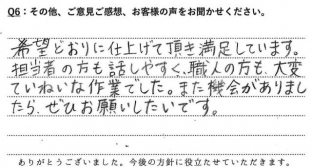 Q6：その他、ご意見ご感想、お客様の声をお聞かせください。
希望どおりに仕上げて頂き満足しています。
担当者の方も話しやすく、職人の方も、大変
ていねいな作業でした。また機会がありまし
たら、ぜひお願いしたいです。
ありがとうございました。今後の方針に役立たせていただきます。